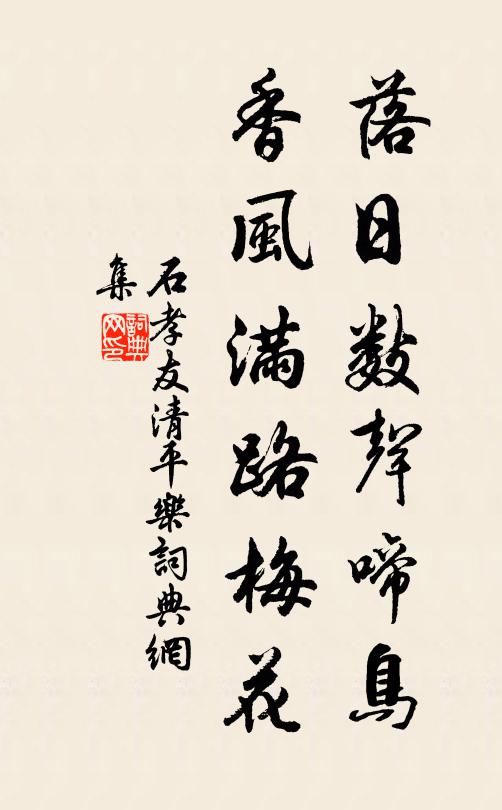 落日數聲啼鳥
香風滿路梅花
石孝友清平樂詞典網
集
詞典網印